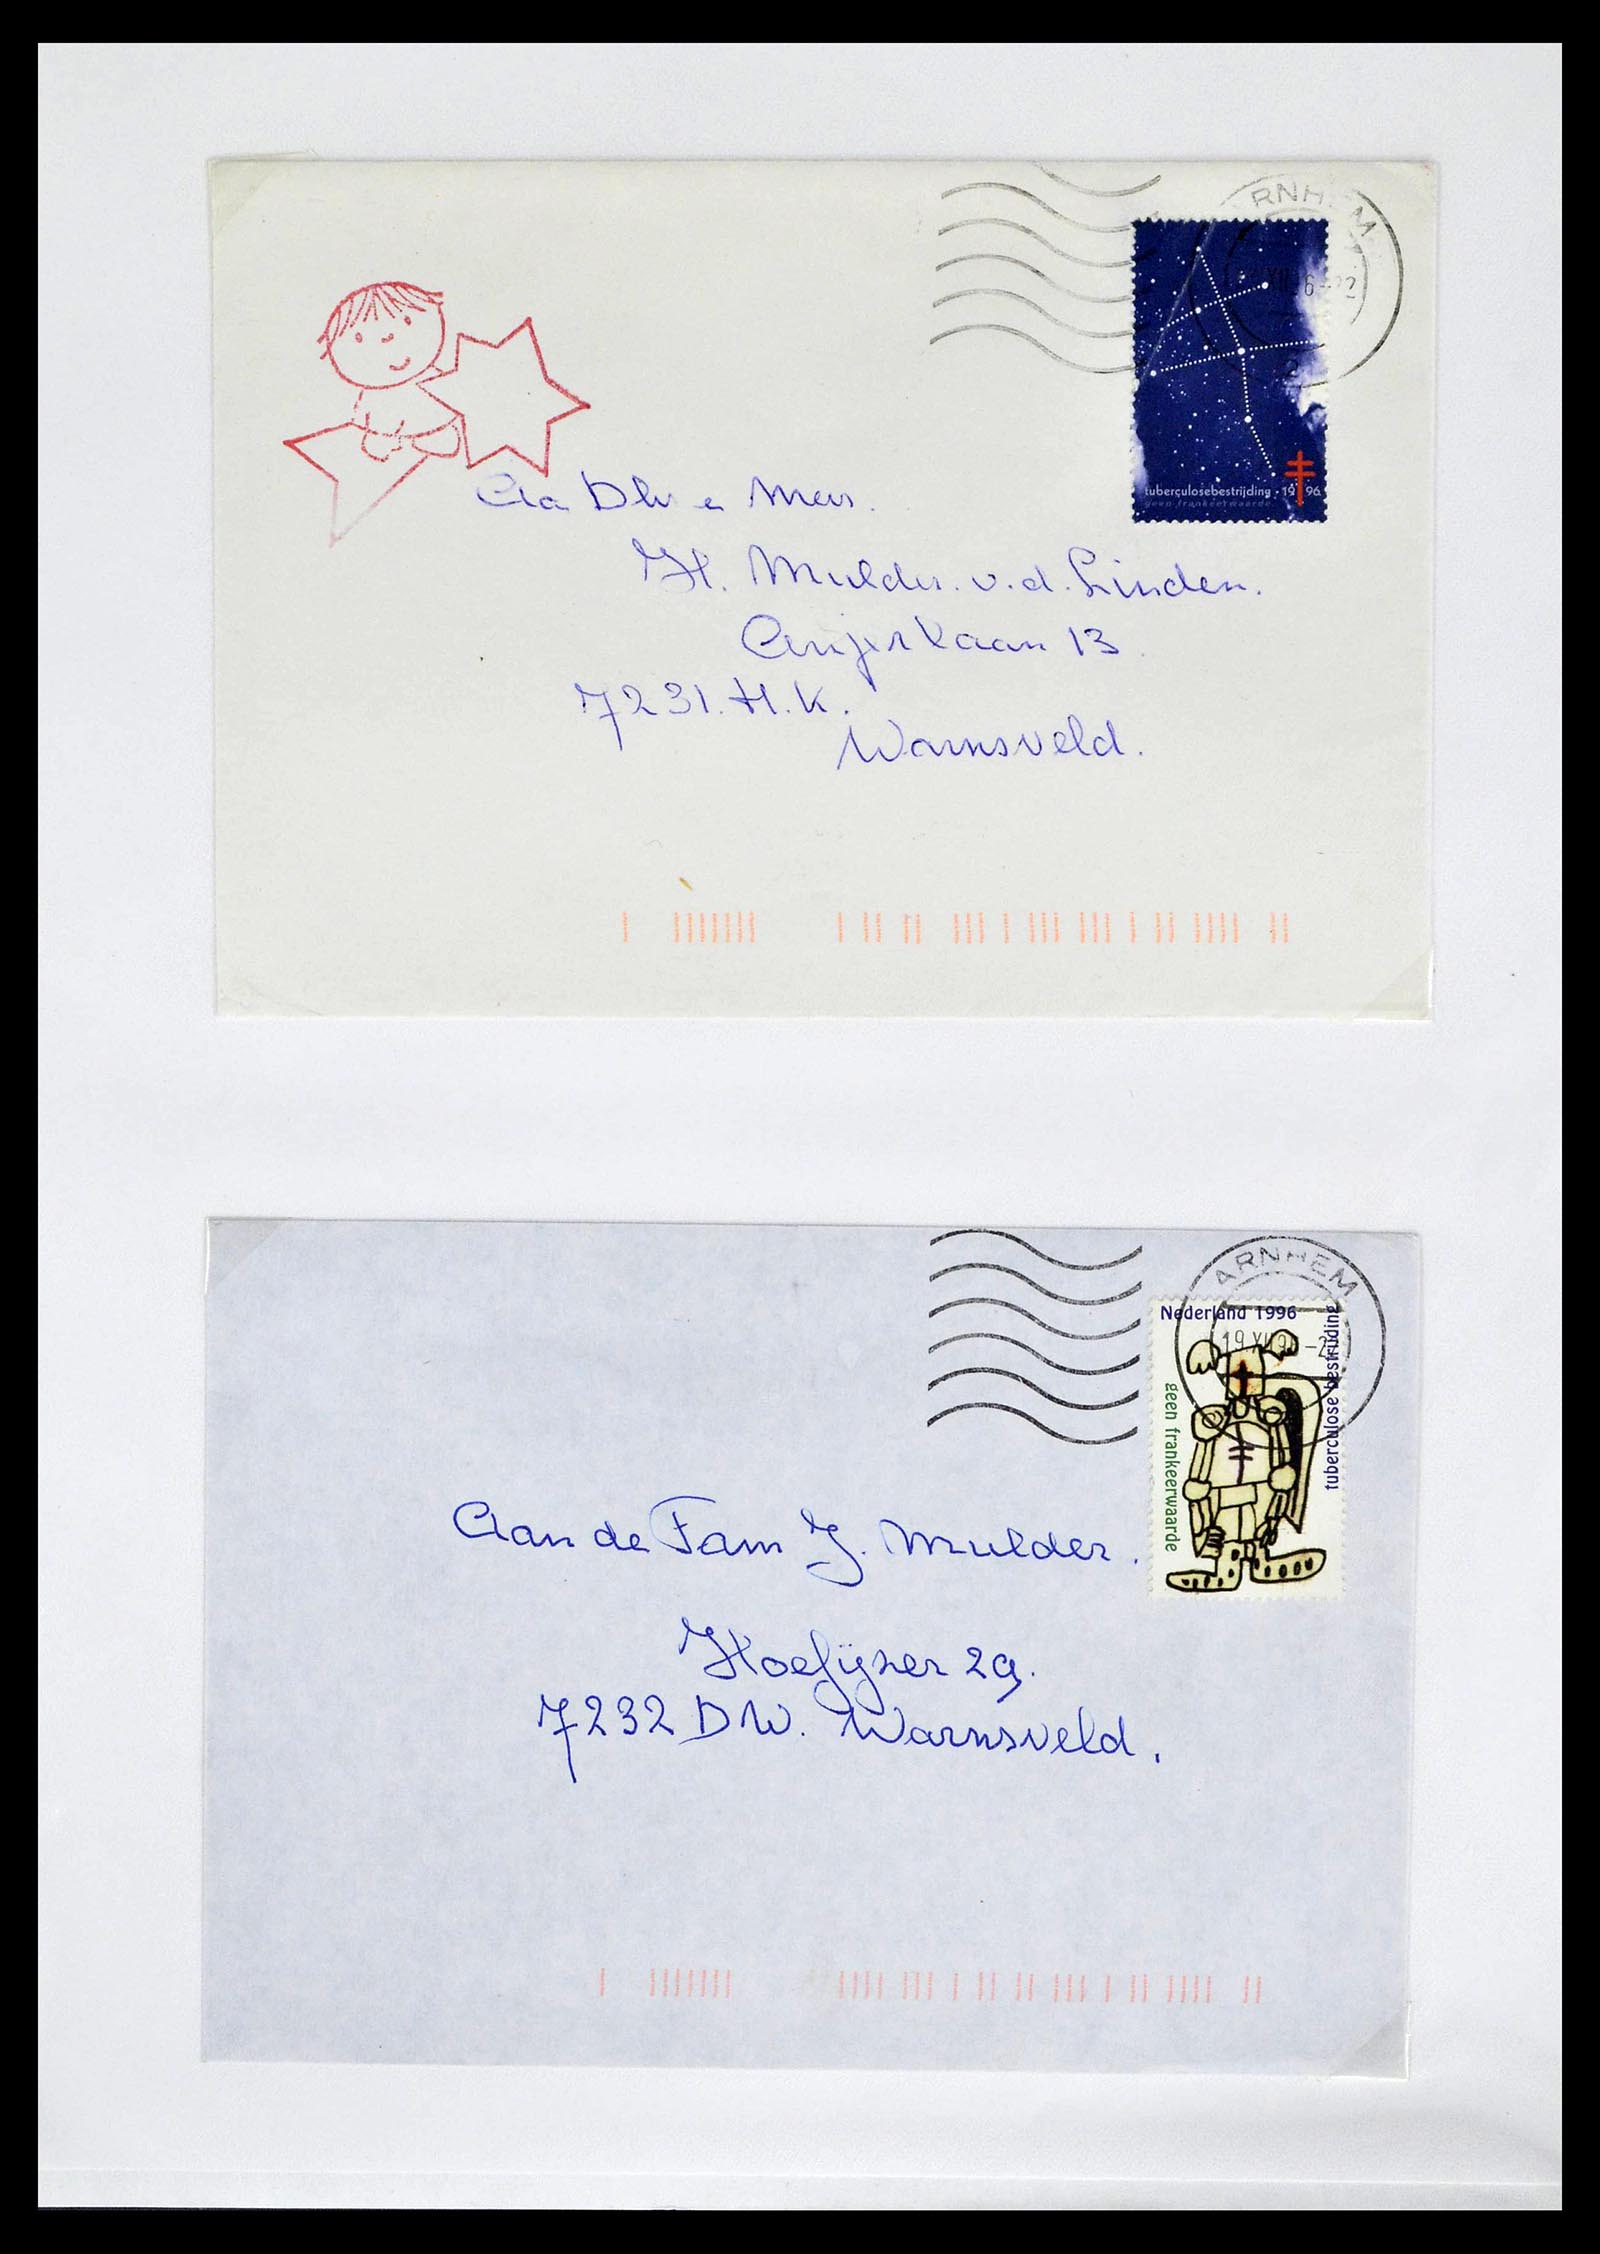 ARNHEM
tuberculosebestrijding · 1996
geen frankeerwaarde
Aa Dhr e Mevr.
H. Mulder. v.d. Linden.
Anjerlaan 13
7231. H.K.
Warnsveld.
ARNHEM
Nederland 1996
tuberculose bestrijding
geen frankeerwaarde
Aan de Fam J. Mulder.
Hoefijzer 29.
7232 DW. Warnsveld.